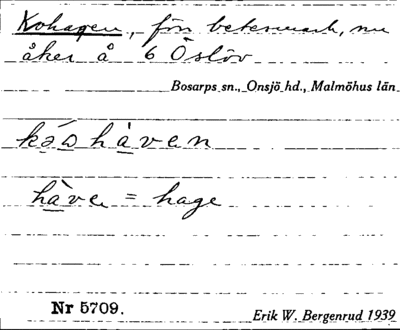 Kohagen, förr betesmark, nu
åker å 6 Öslöv
Bosarps sn., Onsjö hd., Malmöhus län
håven
håve = hage
Nr 5709.
Erik W. Bergenrud 1939